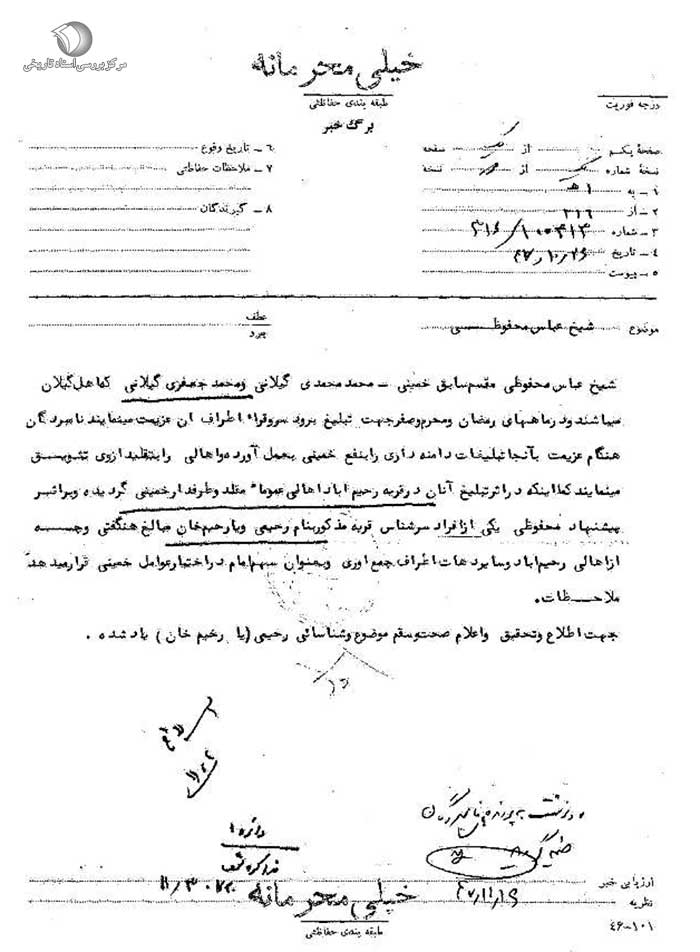 مرکز بررسی اسناد تاریخی
خیلی محرمانه
طبقه بندی حفاظتی
درجه فوریت
برگ خبر
صفحهٔ یکم از یک صفحه
نسخهٔ شماره یک از نسخه
۱ـ به ۱ه
۲ـ از ۳۱۶
۳ـ شماره ۳۱۶/۱۰۰۴۱۴
۴ـ تاریخ ۴۷/۱۰/۲۶
۵ـ پیوست
۶ـ تاریخ وقوع
۷ـ ملاحظات حفاظتی
۸ـ گیرندگان
موضوع شیخ عباس محفوظی
عطف
پیرو
شیخ عباس محفوظی مقسم سابق خمینی ـ محمد محمدی گیلانی ومحمد جعفری گیلانی که اهل گیلان
میباشند در ماههای رمضان ومحرم وصفر جهت تبلیغ برود سر وقراء اطراف ان عزیمت مینمایند نامبردگان
هنگام عزیمت بآنجا تبلیغات دامنه داری را بنفع خمینی بعمل آورده واهالی رابتقلید ازوی تشویق
مینمایند کما اینکه در اثر تبلیغ آنان در قریه رحیم اباد اهالی عموما" مقلد وطرفدار خمینی گردیده وبراثر
پیشنهاد محفوظی یکی از افراد سرشناس قریه مذکور بنام رحیمی ویا رحیم خان مبالغ هنگفتی وجه
از اهالی رحیم اباد وسایر دهات اطراف جمع اوری وبعنوان سهم امام در اختیار عوامل خمینی قرار میدهد
ملاحظات.
جهت اطلاع وتحقیق واعلام صحت وسقم موضوع وشناسائی رحیمی (یا رحیم خان) یاد شده .
در پرونده نامبردگان
دائره ۱
مذاکره شد
۱۱/۳۰
ارزیابی خبر
نظریه ۴۷/۱۱/۱۶
خیلی محرمانه
طبقه بندی حفاظتی
۴۶-۱۰۱